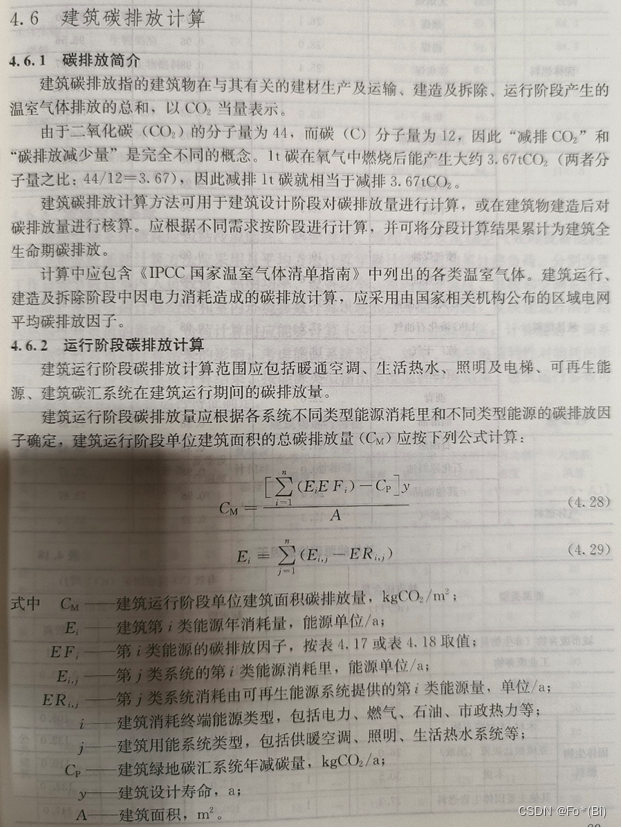 4.6 建筑碳排放计算
4.6.1 碳排放简介
建筑碳排放指的建筑物在与其有关的建材生产及运输、建造及拆除、运行阶段产生的
温室气体排放的总和，以CO₂当量表示。
由于二氧化碳（CO₂）的分子量为44，而碳（C）分子量为12，因此“减排CO₂”和
“碳排放减少量”是完全不同的概念。1t碳在氧气中燃烧后能产生大约3.67tCO₂（两者分
子量之比：44/12=3.67），因此减排1t碳就相当于减排3.67tCO₂。
建筑碳排放计算方法可用于建筑设计阶段对碳排放量进行计算，或在建筑物建造后对
碳排放量进行核算。应根据不同需求按阶段进行计算，并可将分段计算结果累计为建筑全
生命期碳排放。
计算中应包含《IPCC国家温室气体清单指南》中列出的各类温室气体。建筑运行、
建造及拆除阶段中因电力消耗造成的碳排放计算，应采用由国家相关机构公布的区域电网
平均碳排放因子。
4.6.2 运行阶段碳排放计算
建筑运行阶段碳排放计算范围应包括暖通空调、生活热水、照明及电梯、可再生能
源、建筑碳汇系统在建筑运行期间的碳排放量。
建筑运行阶段碳排放量应根据各系统不同类型能源消耗里和不同类型能源的碳排放因
子确定，建筑运行阶段单位建筑面积的总碳排放量（C_M）应按下列公式计算：
C_M = [∑_{i=1}^{n}(E_iEF_i)−C_P]y / A （4.28）
E_i = ∑_{j=1}^{n}(E_{i,j}−ER_{i,j}) （4.29）
式中 C_M——建筑运行阶段单位建筑面积碳排放量，kgCO₂/m²；
E_i——建筑第i类能源年消耗量，能源单位/a；
EF_i——第i类能源的碳排放因子，按表4.17或表4.18取值；
E_{i,j}——第j类系统的第i类能源消耗里，能源单位/a；
ER_{i,j}——第j类系统消耗由可再生能源系统提供的第i类能源量，单位/a；
i——建筑消耗终端能源类型，包括电力、燃气、石油、市政热力等；
j——建筑用能系统类型，包括供暖空调、照明、生活热水系统等；
C_P——建筑绿地碳汇系统年减碳量，kgCO₂/a；
y——建筑设计寿命，a；
A——建筑面积，m²。
CSDN @Fo*(Bl)